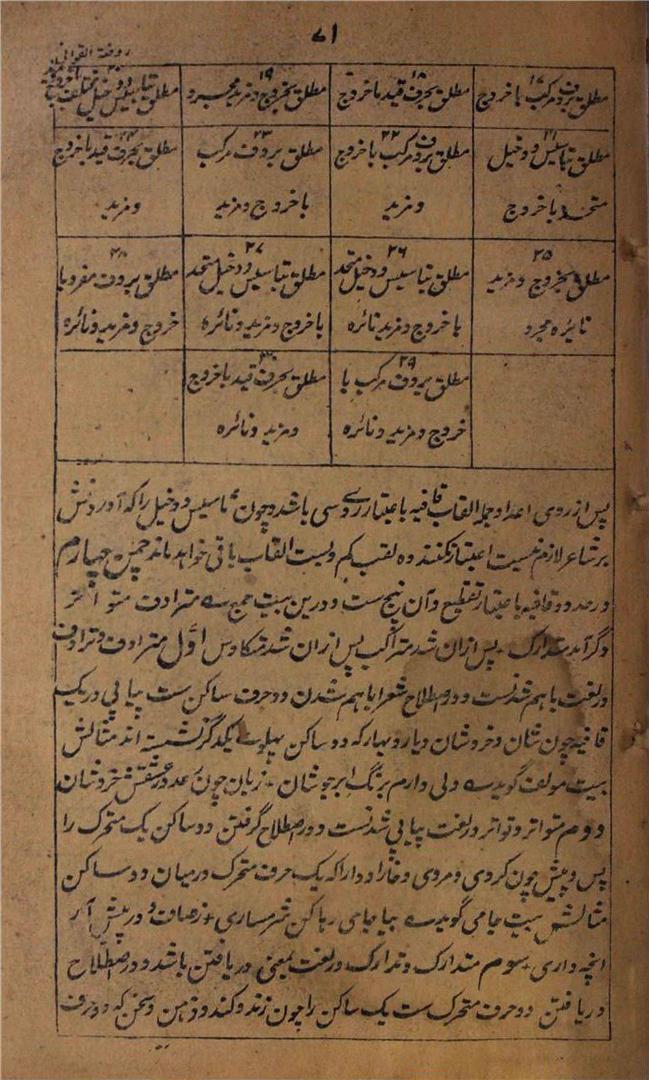 ۷۱
روضة القوافی
۱۷ مطلق بروف مرکب با خروج
۱۸ مطلق بحرف قید با خروج
۱۹ مطلق بخروج و مزید مجرد
مطلق بتاسیس و دخیل مختلف
۲۱ مطلق بتاسیس و دخیل
متحد با خروج
۲۲ مطلق بروف مرکب با خروج
و مزید
۲۳ مطلق بروف مرکب
با خروج و مزید
۲۴ مطلق بحرف قید با خروج
و مزید
۲۵
مطلق بخروج و مزید
نائره مجرد
۲۶
مطلق بتاسیس و دخیل متحد
با خروج و مزید نائره
۲۷
مطلق بتاسیس و دخیل متحد
با خروج و مزید و نائره
۲۸
مطلق بروف مفرد با
خروج و مزید و نائره
۲۹
مطلق بروف مرکب با
خروج و مزید و نائره
۳۰
مطلق بحرف قید با خروج
و مزید و نائره
پس از روی اعداد جمله القاب قافیه باعتبار روی سی باشد و چون تاسیس و دخیل را که آوردنش
بر شاعر لازم نیست اعتبار نکنند ده لقب کم و بیست القاب باقی خواهد ماند چمن چهارم
در حدود قافیه باعتبار تقطیع و آن پنج ست و درین بیت جمع ست مترادف متواتر
دگر آمد متدارک پس ازان شد متراکب پس ازان شد متکاوس اول مترادف و ترادف
در لغت باهم شدنست و در اصطلاح شعرا باهم شدن دو حرف ساکن ست پیاپی در یک
قافیه چون نشان و خروشان و یار و بهار که دو ساکن بپهلوی یکدگر نشسته اند مثالش
بیت مولف گوید دلی دارم برنگ ابر جوشان زبان چون رعد در عشقش خروشان
دوم متواتر و تواتر در لغت پیاپی شدنست و در اصطلاح گرفتن دو ساکن یک متحرک را
پس و پیش چون کردی و مردی و دارا که یک حرف متحرک درمیان دو ساکن
مثالش بیت جامی گوید بیا جامی رها کن شرمساری ز صاف و درد پیش آر
انچه داری سوم متدارک و تدارک در لغت بمعنی دریافتن باشد و در اصطلاح
دریافتن دو حرف متحرک ست یک ساکن را چون زند و کند و ذهن و سخن که دو حرف